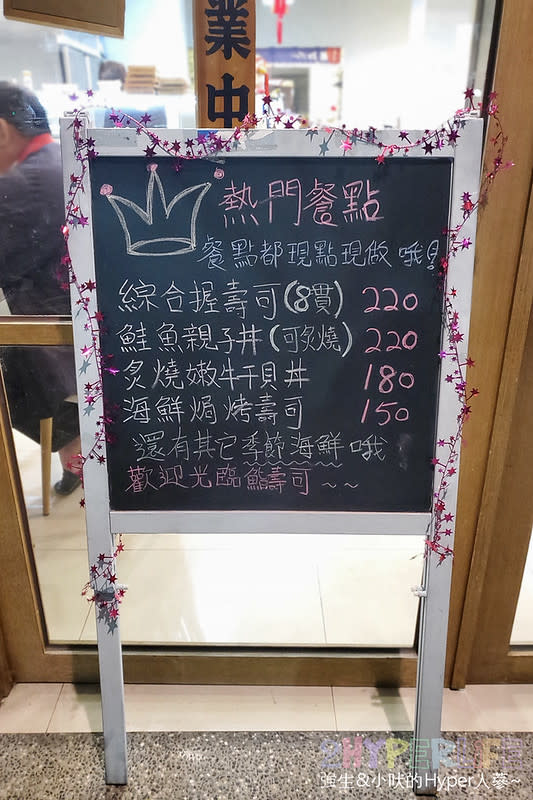 業中
熱門餐點
餐點都現點現做哦!
綜合握壽司(8貫) 220
鮭魚親子丼(可炙燒) 220
炙燒嫩牛干貝丼 180
海鮮焗烤壽司 150
還有其它季節海鮮哦
歡迎光臨鮨壽司~~
HYPERLIFE
強生&小吠的Hyper人蔘~